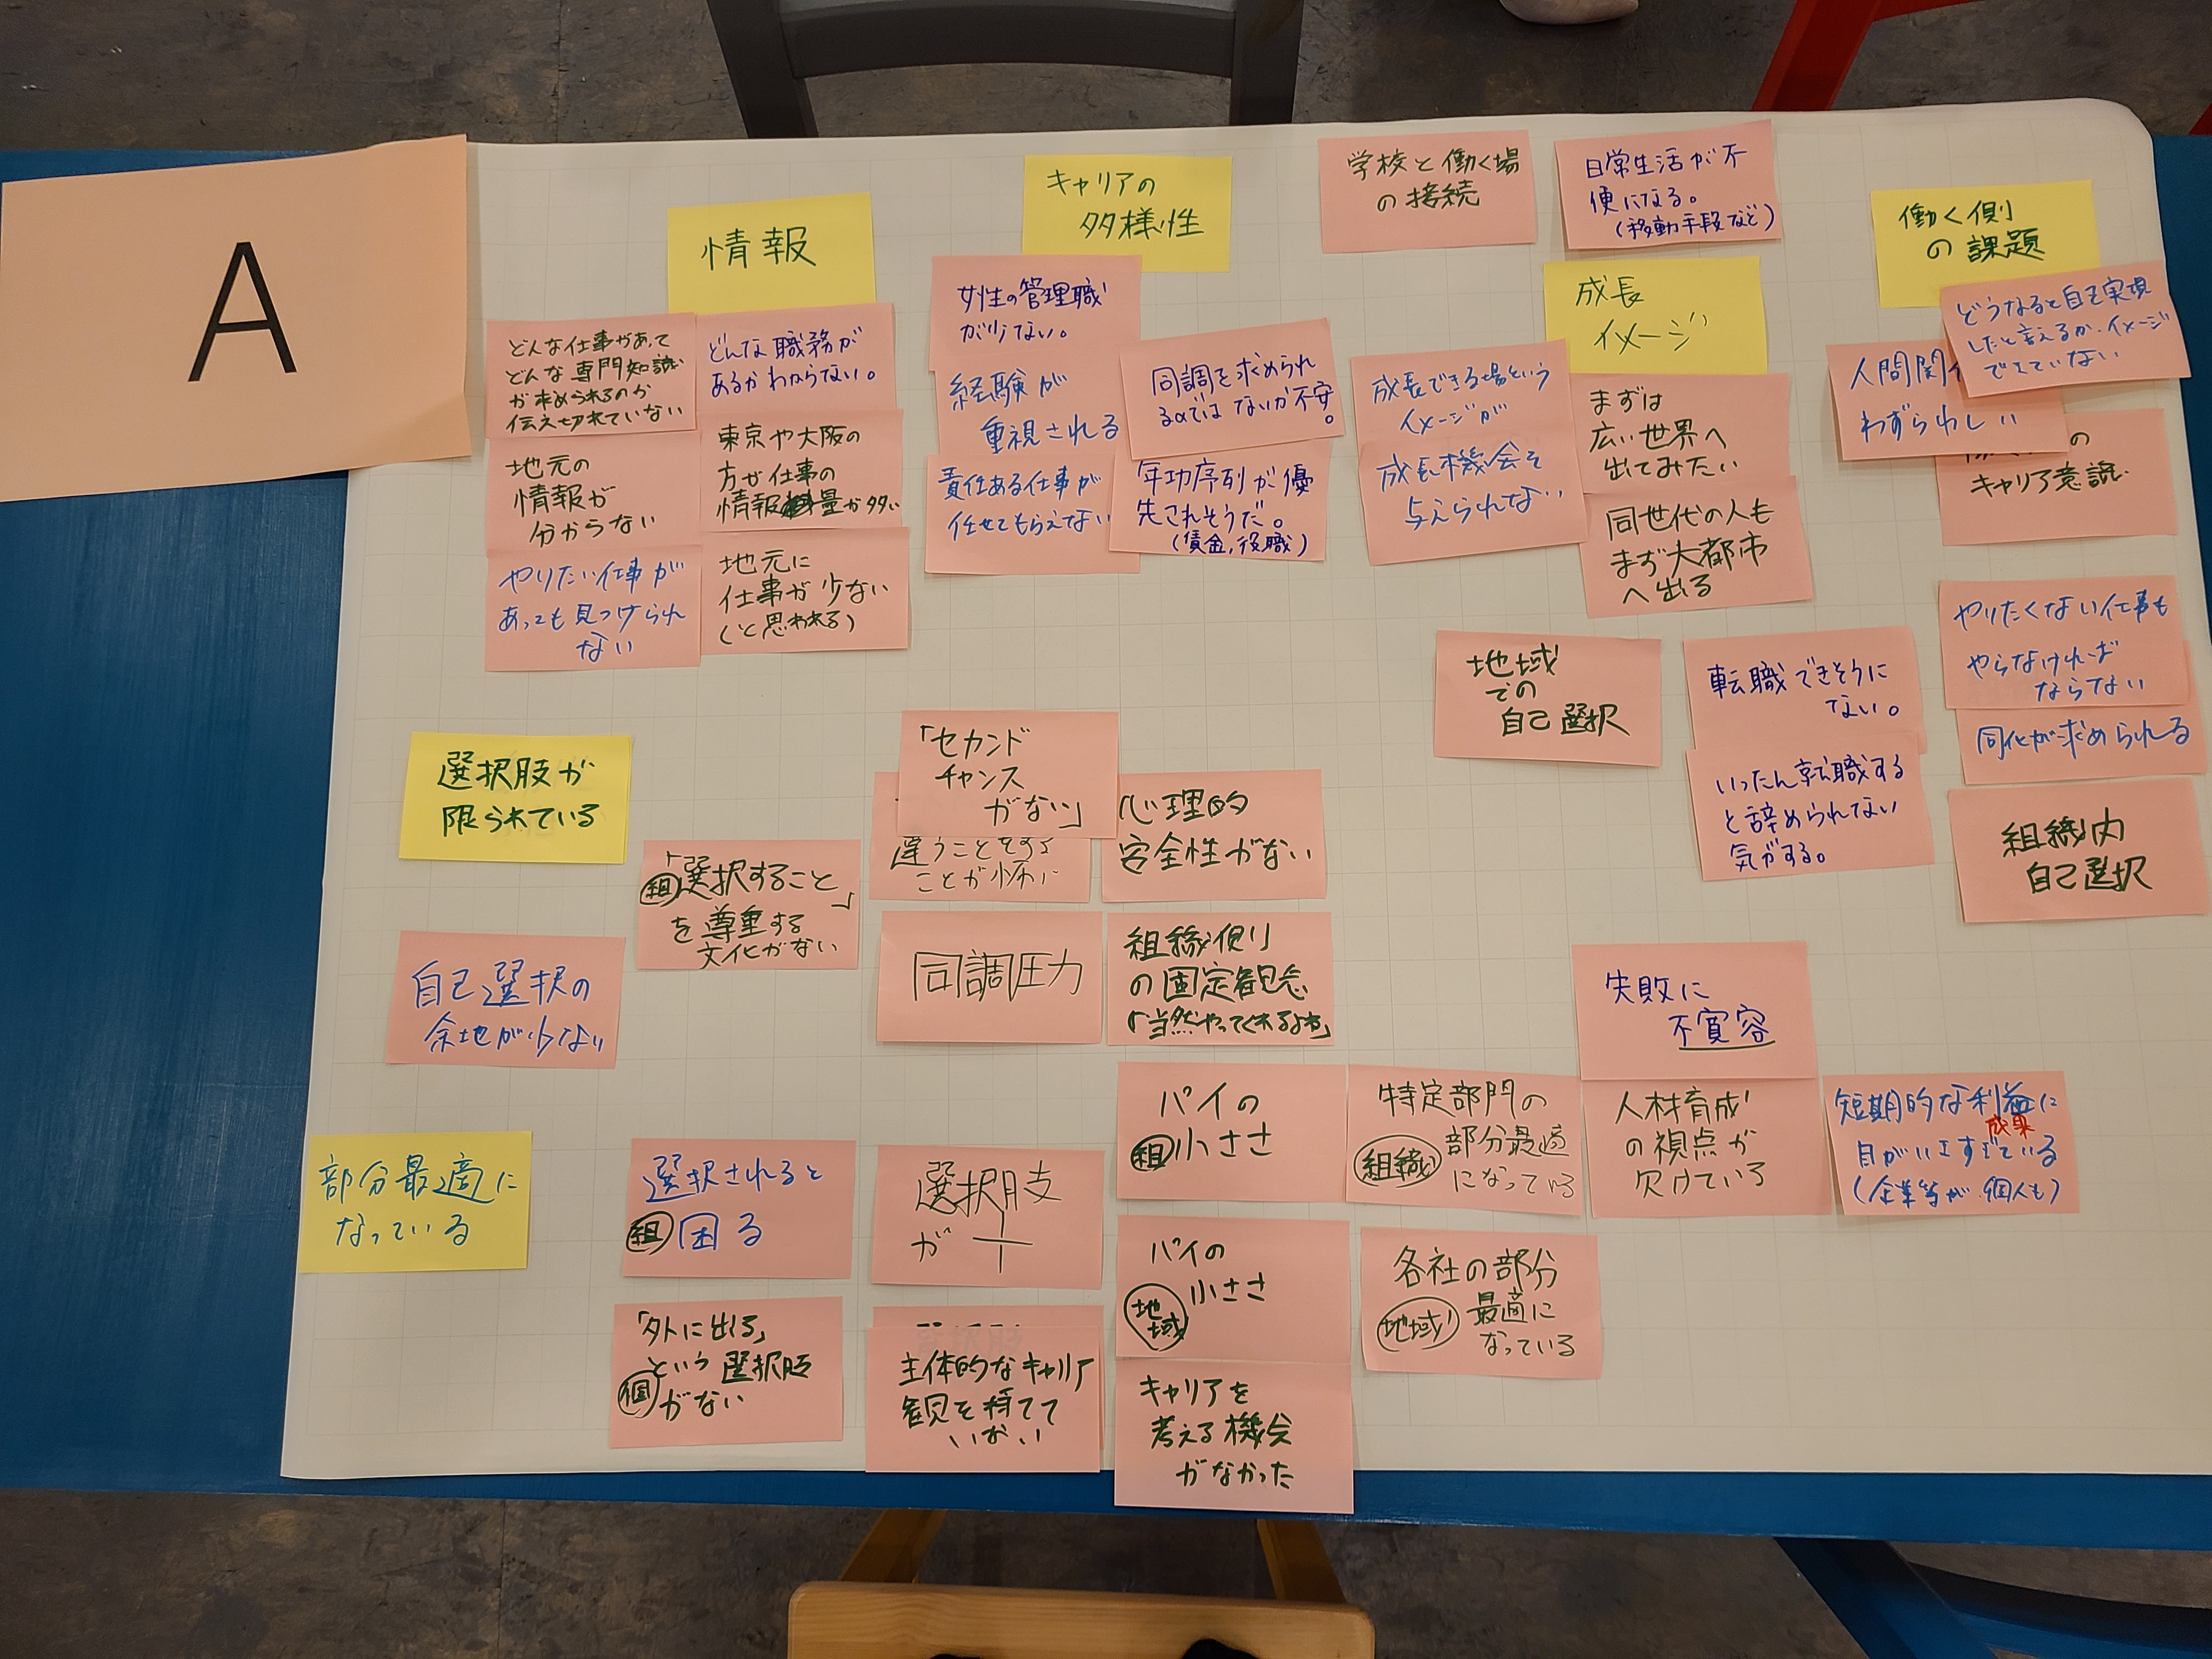 A
情報
どんな仕事があって
どんな専門知識
が求められるのか
伝え切れていない
どんな職務が
あるかわからない。
地元の
情報が
分からない
東京や大阪の
方が仕事の
情報量が多い
やりたい仕事が
あっても見つけられ
ない
地元に
仕事が少ない
(と思われる)
キャリアの
多様性
女性の管理職
が少ない。
経験が
重視される
責任ある仕事が
任せてもらえない
同調を求められ
るのではないか不安。
年功序列が優
先されそうだ。
(賃金,役職)
学校と働く場
の接続
日常生活が不
便になる。
(移動手段など)
成長
イメージ
成長できる場という
イメージが
成長機会を
与えられない
まずは
広い世界へ
出てみたい
同世代の人も
まず大都市
へ出る
働く側
の課題
どうなると自己実現
したと言えるか、イメージ
できていない
人間関
わずらわしい
の
キャリア意識
地域
での
自己選択
転職できそうに
ない。
いったん転職する
と辞められない
気がする。
やりたくない仕事も
やらなければ
ならない
同化が求められる
組織内
自己選択
選択肢が
限られている
組「選択すること」
を尊重する
文化がない
「セカンド
チャンス
がない」
違うことをする
ことが怖い
心理的
安全性がない
自己選択の
余地が少ない
同調圧力
組織側
の固定観念
「当然やってくれるよね」
失敗に
不寛容
部分最適に
なっている
選択されると
組 困る
選択肢
が
パイの
組 小ささ
特定部門の
組織 部分最適
になっている
人材育成
の視点が
欠けている
短期的な利益に
成果
目がいきすぎている
(企業等が、個人も)
「外に出る」
という選択肢
個 がない
主体的なキャリア
観を持てて
いない
パイの
地域 小ささ
各社の部分
地域 最適に
なっている
キャリアを
考える機会
がなかった